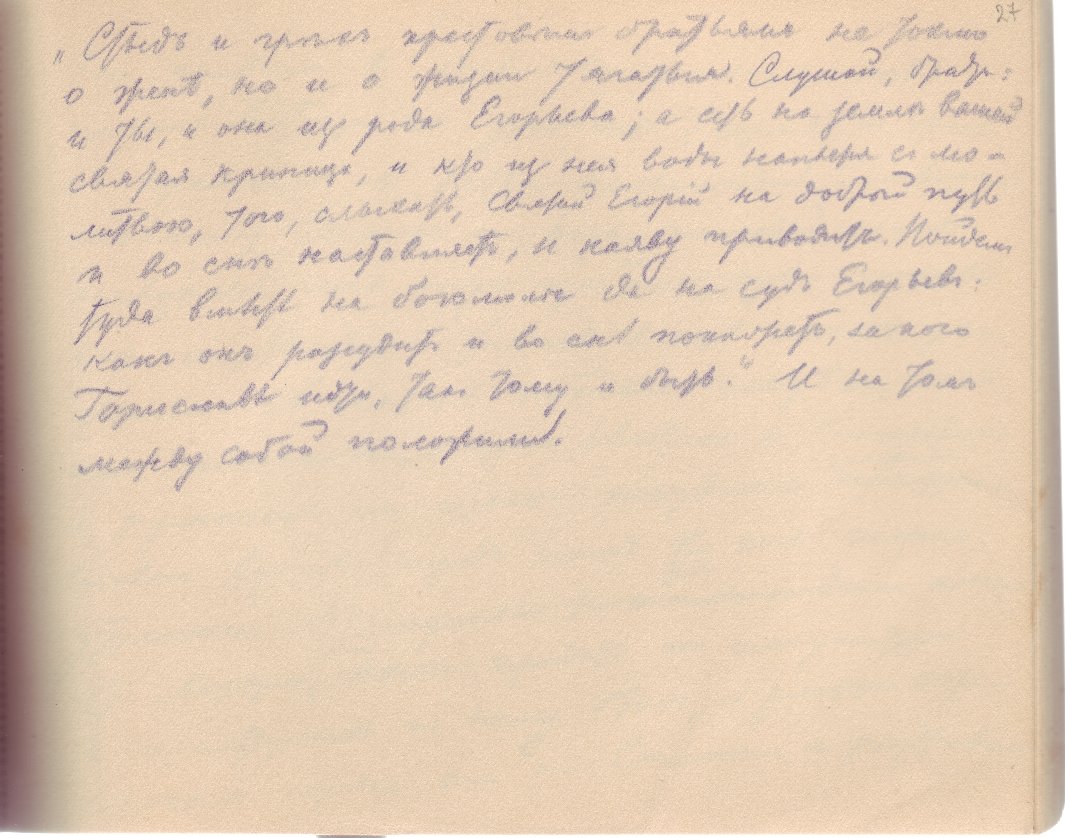 27
„Стыдъ и грѣхъ крестовымъ братьямъ не токмо
о женѣ, но и о жизни тягаться. Слушай, братъ:
и ты, и она изъ рода Егорьева; а есть на землѣ вашей
святая криница, и кто изъ нея воды напьется съ мо-
литвою, того, слыхать, Святой Егорій на добрый путь
и во снѣ наставляетъ, и наяву приводитъ. Пойдемъ
туда вмѣстѣ на богомолье да на судъ Егорьевъ:
какъ онъ разсудитъ и во снѣ понаоретъ, за кого
Гориславѣ идти, такъ тому и быть." И на томъ
между собой положили.